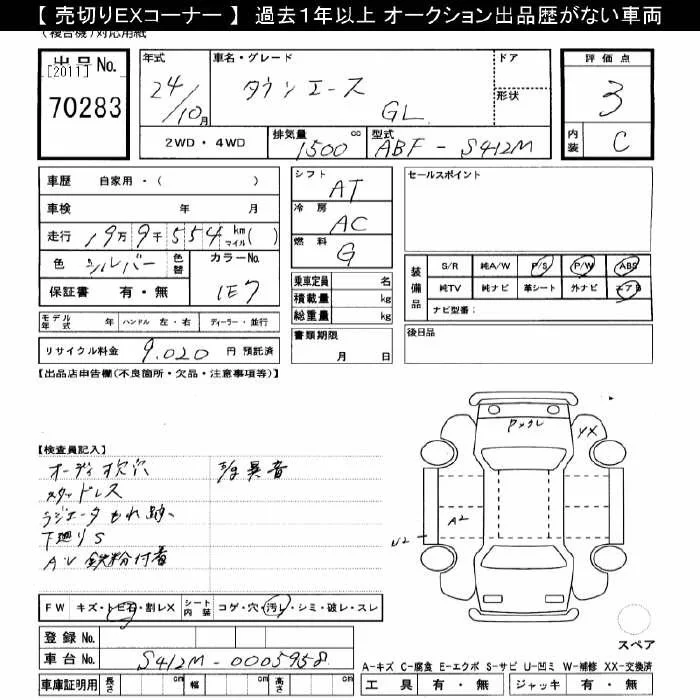 【 売切りEXコーナー 】 過去1年以上 オークション出品歴がない車両
(複合機)対応用紙
出品No.
[2011]
70283
年式
24/10月
車名・グレード
タウンエース
GL
ドア
形状
2WD・4WD
排気量
1500 cc
型式
ABF-S412M
評価点
3
内装
C
車歴 自家用・( )
車検 年 月
走行 19万9千554 km マイル( )
色 シルバー
色替
カラーNo.
1E7
保証書 有・無
モデル年式 年 ハンドル 左・右 ディーラー・並行
リサイクル料金 9,020 円 預託済
シフト
AT
冷房
AC
燃料
G
乗車定員 名
積載量 kg
総重量 kg
書類期限
月 日
セールスポイント
装備品
S/R 純A/W P/S P/W ABS
純TV 純ナビ 革シート 外ナビ エアB
ナビ型番:
後日品
【出品店申告欄(不良箇所・欠品・注意事項等)】
【検査員記入】
オーディオ穴
異音
スタッドレス
ラジエータもれ跡
下廻りS
鉄粉付着
FW キズ・トビ石・割レX
シート内装 コゲ・穴・汚レ・シミ・破レ・スレ
登録No.
車台No. S412M-0005958
車庫証明用 長さ cm 幅 cm 高さ cm
YX
A2
U2
スペア
A-キズ C-腐食 E-エクボ S-サビ U-凹ミ W-補修 XX-交換済
工具 有・無 ジャッキ 有・無